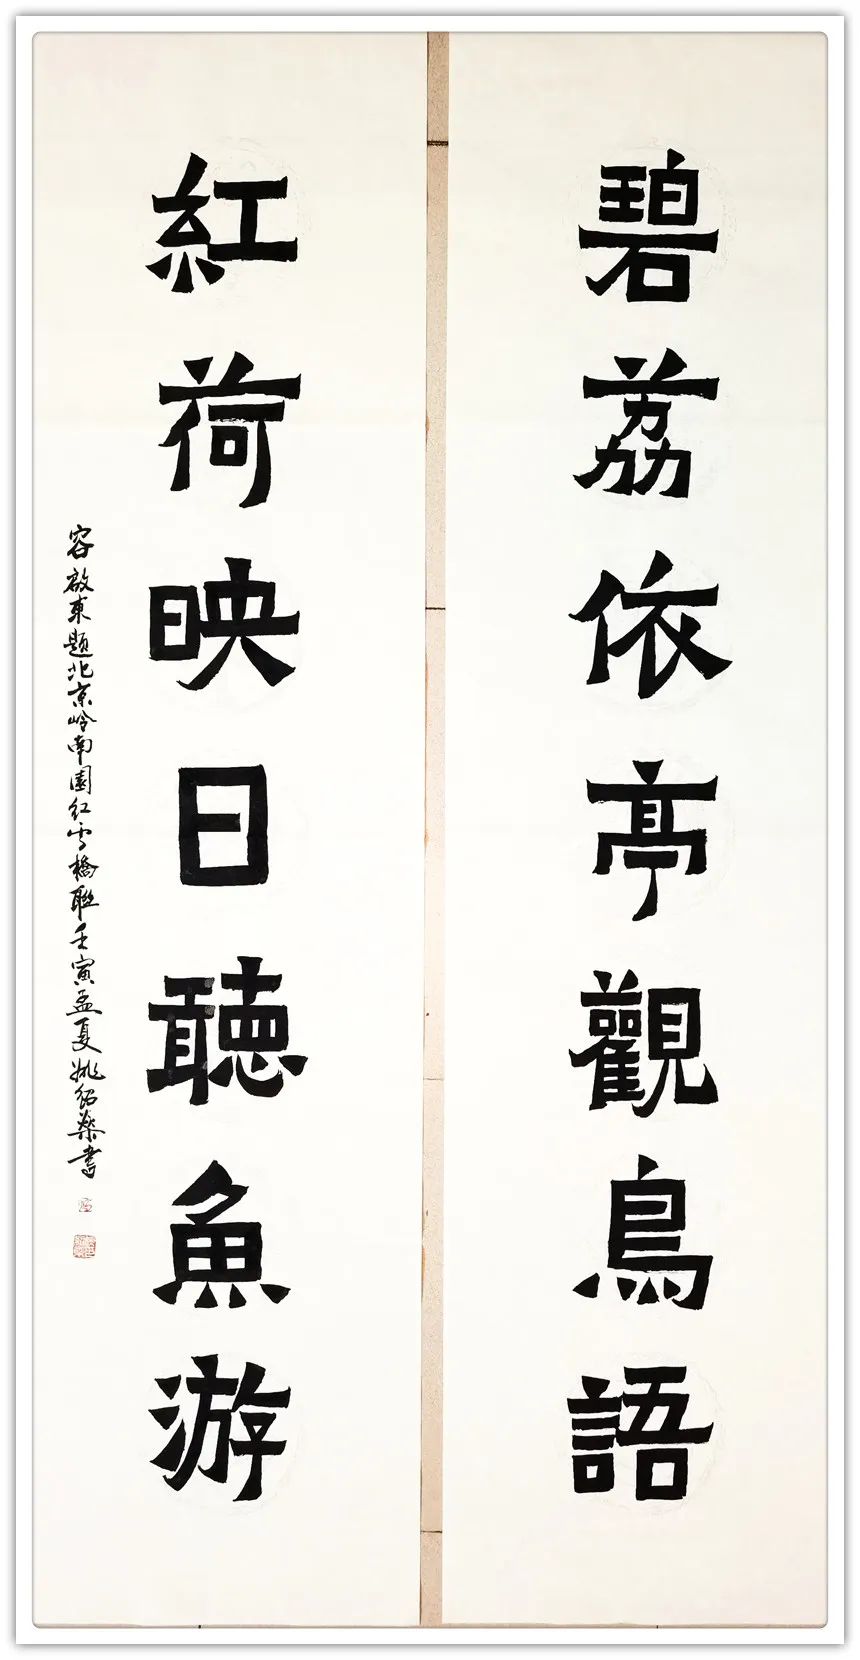 碧荔依亭觀鳥語
紅荷映日聽魚游
容啟東題北京岭南園红雪橋联壬寅孟夏姚绍燊書